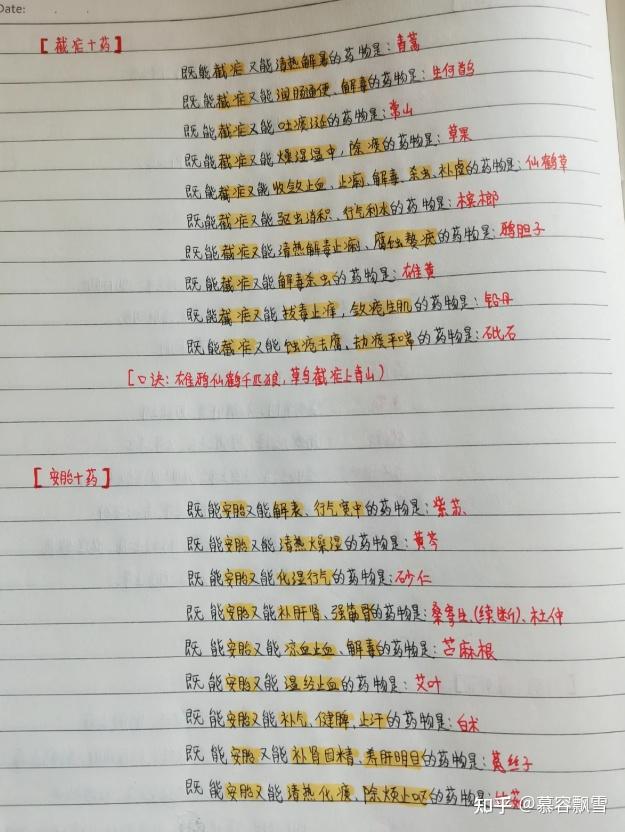 Date:
[截疟十药]
既能截疟又能清热解暑的药物是:青蒿
既能截疟又能润肠通便、解毒的药物是:生何首乌
既能截疟又能吐痰涎的药物是:常山
既能截疟又能燥湿温中,除痰的药物是:草果
既能截疟又能收敛止血、止痢、解毒、杀虫、补虚的药物是:仙鹤草
既能截疟又能驱虫消积、行气利水的药物是:槟榔
既能截疟又能清热解毒止痢、腐蚀赘疣的药物是:鸦胆子
既能截疟又能解毒杀虫的药物是:雄黄
既能截疟又能拔毒止痒,敛疮生肌的药物是:铅丹
既能截疟又能蚀疮去腐、劫痰平喘的药物是:砒石
[口诀:雄鸦仙鹤千匹狼,草乌截疟上青山)
[安胎十药]
既能安胎又能解表、行气宽中的药物是:紫苏、
既能安胎又能清热燥湿的药物是:黄芩
既能安胎又能化湿行气的药物是:砂仁
既能安胎又能补肝肾、强筋骨的药物是:桑寄生、(续断)、杜仲
既能安胎又能凉血止血、解毒的药物是:苎麻根
既能安胎又能温经止血的药物是:艾叶
既能安胎又能补气、健脾、止汗的药物是:白术
既能安胎又能补肾固精、养肝明目的药物是:菟丝子
既能安胎又能清热化痰、除烦止呕的药物是:竹茹
知乎 @慕容飘雪